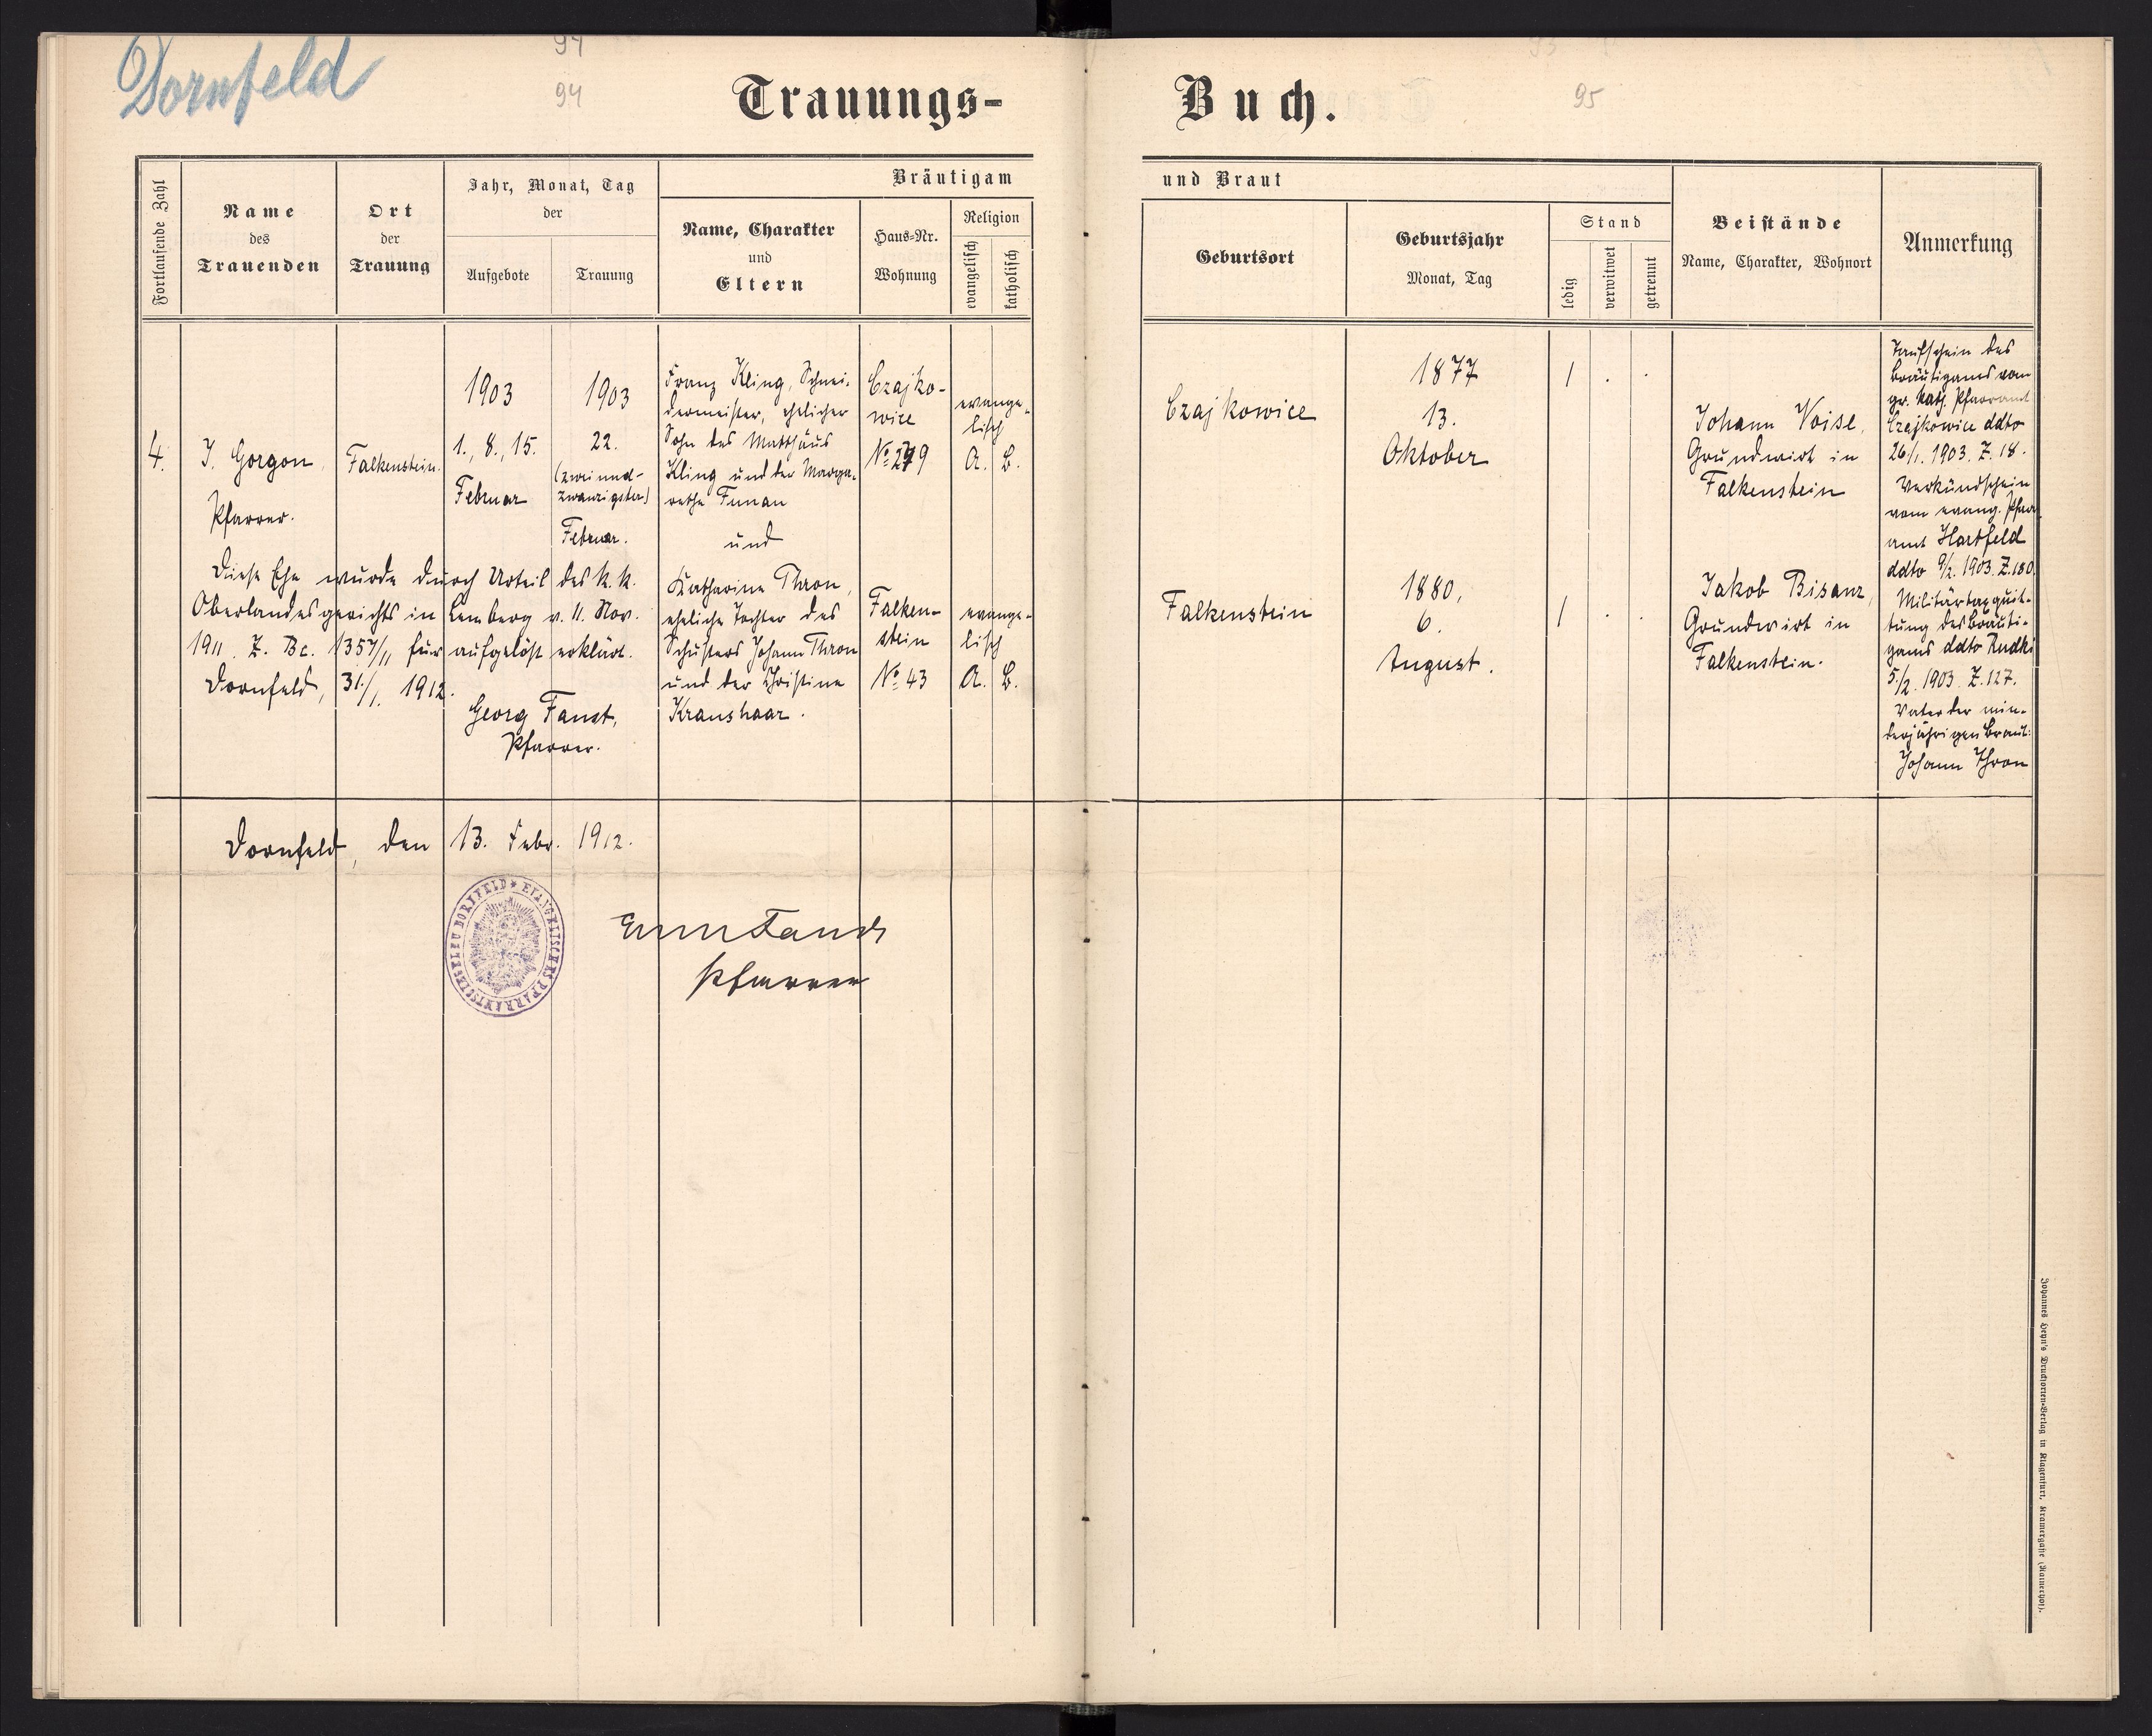 Dornfeld
94
94
95
Trauungs-
Buch.
Fortlaufende Zahl
Name
des
Trauenden
Ort
der
Trauung
Jahr, Monat, Tag
der
Aufgebote
Trauung
Bräutigam
und Braut
Name, Charakter
und
Eltern
Haus-Nr.
Wohnung
Religion
evangelisch
katholisch
Geburtsort
Geburtsjahr
Monat, Tag
Stand
ledig
verwitwet
getrennt
Beistände
Name, Charakter, Wohnort
Anmerkung
4.
J. Gorgon,
Pfarrer.
Falkenstein.
1903
1., 8., 15.
Februar
1903
22.
(zweiund-
zwanzigster)
Februar.
Franz Kling, Schnei-
dermeister, ehelicher
Sohn des Matthäus
Kling und der Marga-
rethe
und
Katharina Thron,
eheliche Tochter des
Schusters Johann Thron
und der Christine
Kraushaar.
Czajko-
wice
№
evange-
lisch
A. B.
Falken-
stein
№ 43
evange-
lisch
A. B.
Czajkowice
Falkenstein
1877
13.
Oktober
1880,
6.
August.
1 . .
1 . .
Johann Voise,
Grundwirt in
Falkenstein
Jakob Bisanz,
Grundwirt in
Falkenstein.
Taufschein des
Bräutigams vom
gr. kath. Pfarramt
Czajkowice ddto
26/1. 1903. Z. 18.
Verkündschein
vom evang. Pfarr
amt Hartfeld
ddto 9/2. 1903. Z. 180.
Militärtaxquit-
tung des Bräuti-
gams ddto Rudki
5./2. 1903. Z. 127.
Vater der min-
derjährigen Braut:
Johann Thron
Diese Ehe wurde durch Urteil des k. k.
Oberlandesgerichts in Lemberg v. 11. Nov.
1911. Z. Bc. 1357/11 für aufgelöst erklärt.
Dornfeld, 31./1. 1912.
Georg Faust,
Pfarrer.
Dornfeld, den 13. Febr. 1912.
Pfarrer
Johannes Heyn's Drucksorten-Verlag in Klagenfurt, Kramergasse